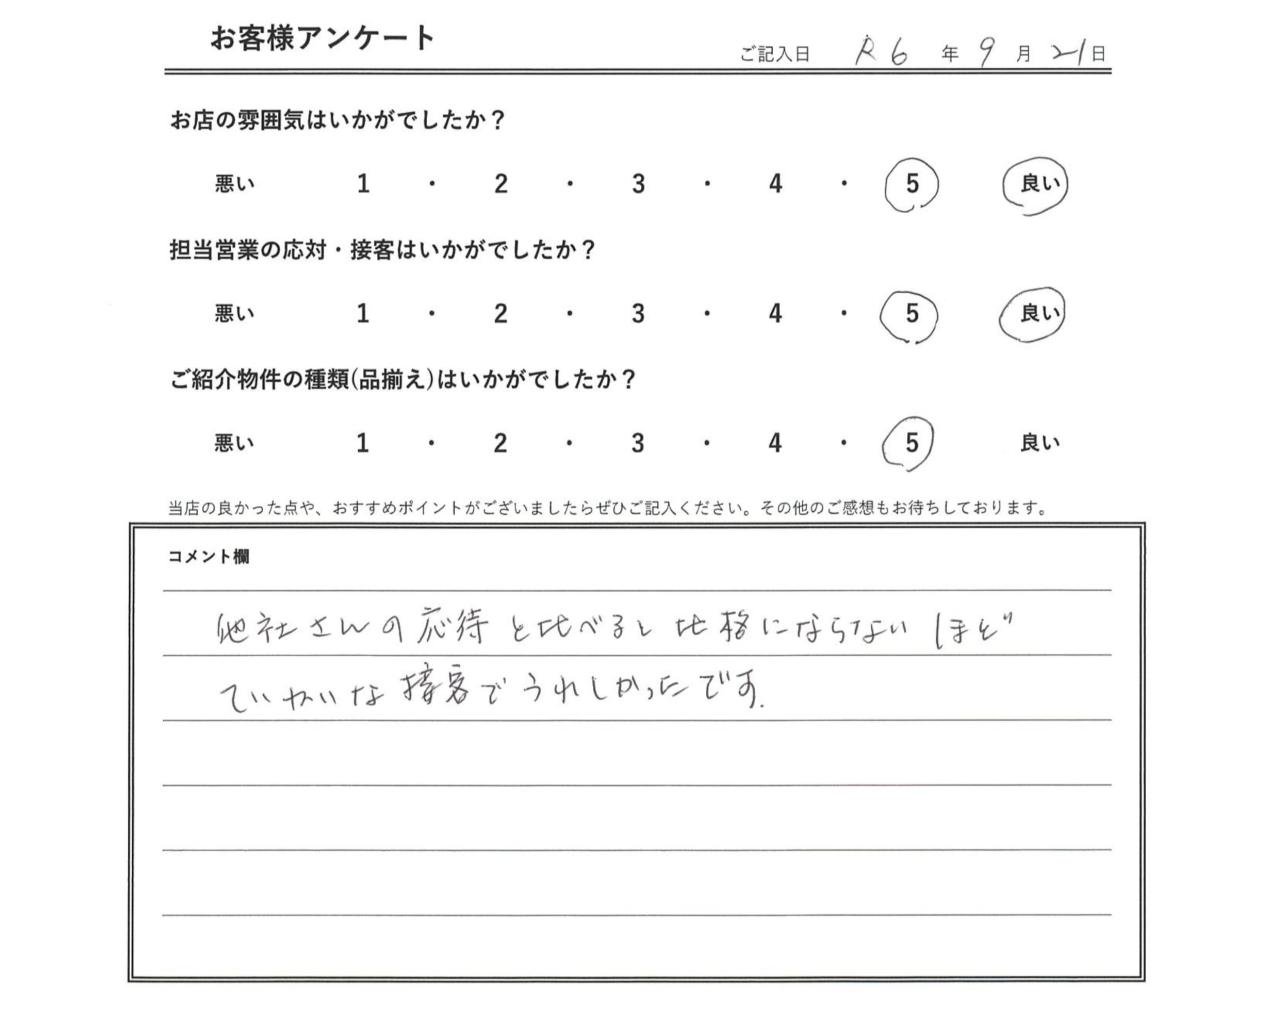 お客様アンケート
ご記入日 R6年9月21日
お店の雰囲気はいかがでしたか？
悪い 1 ・ 2 ・ 3 ・ 4 ・ 5 良い
担当営業の応対・接客はいかがでしたか？
悪い 1 ・ 2 ・ 3 ・ 4 ・ 5 良い
ご紹介物件の種類(品揃え)はいかがでしたか？
悪い 1 ・ 2 ・ 3 ・ 4 ・ 5 良い
当店の良かった点や、おすすめポイントがございましたらぜひご記入ください。その他のご感想もお待ちしております。
コメント欄
他社さんの応待と比べると比格にならないほど
ていねいな接客でうれしかったです.